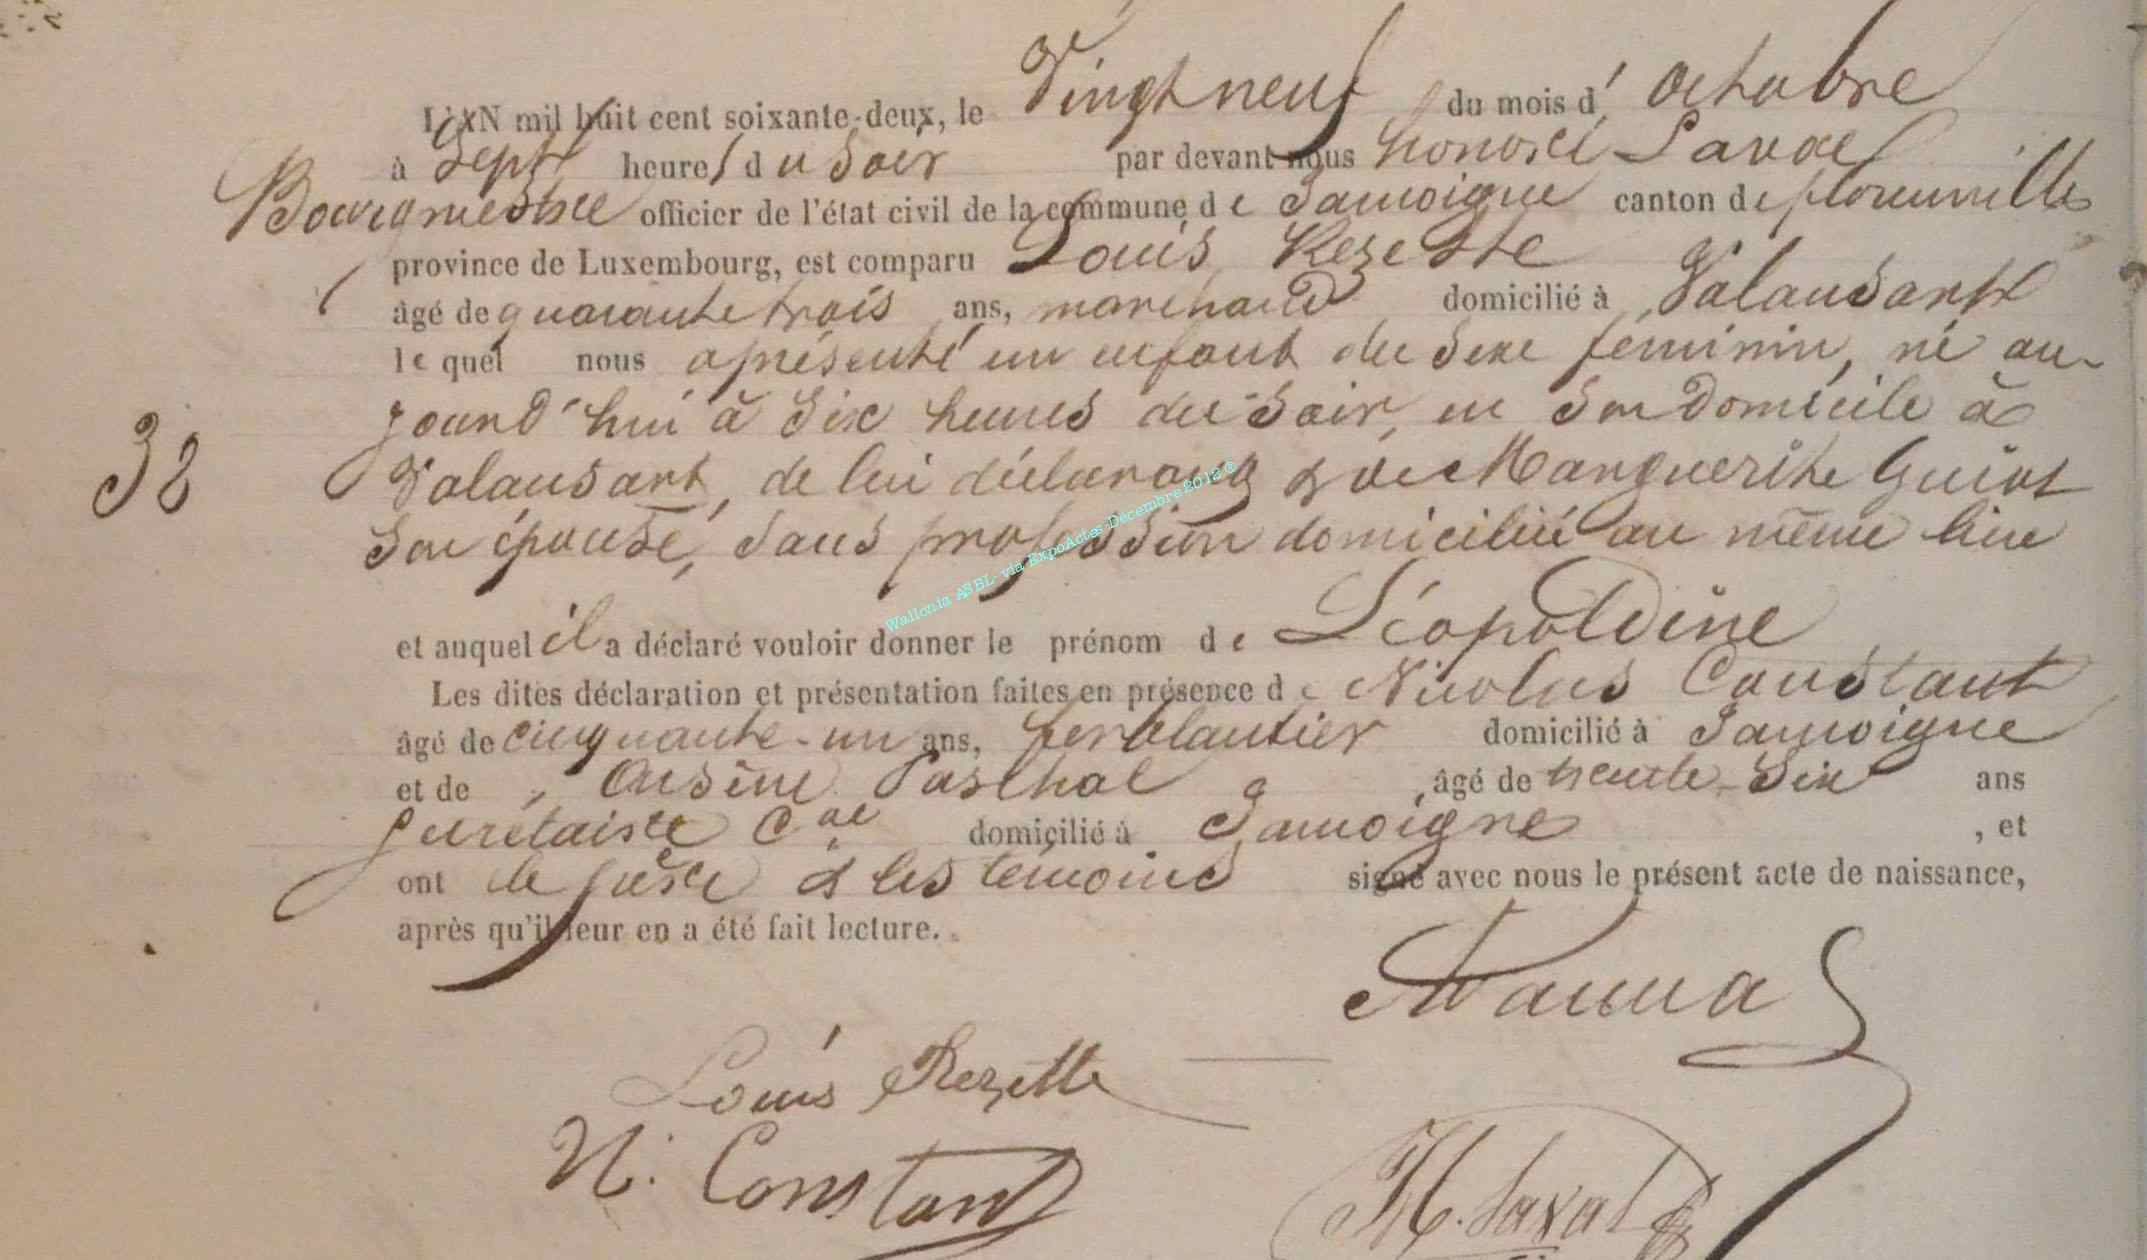 L'AN mil huit cent soixante-deux, le Vingt neuf du mois d' Octobre
à Sept heures du Soir par devant nous honoré Laval
Bourgmestre officier de l'état civil de la commune de Jamoigne canton de florenville
province de Luxembourg, est comparu Louis Rezette
âgé de quarante trois ans, marchand domicilié à Valansart
lequel nous a présenté un enfant du Sexe féminin, né au-
jourd'hui à Six heures du Soir, en Son Domicile à
38
Valansart, de lui déclarant & de Marguerite Guiot
Son épouse, Sans profession domiciliée au même lieu
Wallonia ASBL- via ExpoActes-Décembre 2012 ©
et auquel il a déclaré vouloir donner le prénom de Léopoldine
Les dites déclaration et présentation faites en présence de Nicolas Constant
âgé de cinquante-un ans, ferblantier domicilié à Jamoigne
et de Arsène Paschal âgé de trente-Six ans
Secrétaire Cal domicilié à Jamoigne , et
ont le père & les témoins signé avec nous le présent acte de naissance,
après qu'il leur en a été fait lecture.
Louis Rezette
N. Constant
H. Laval